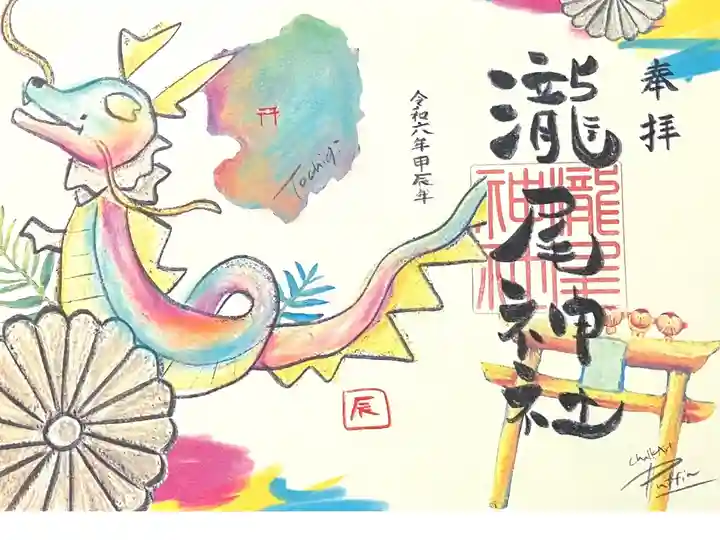 奉拝
瀧尾神社
瀧尾
神社
令和六年甲辰年
Tochigi
辰
chalkArt
Puffin